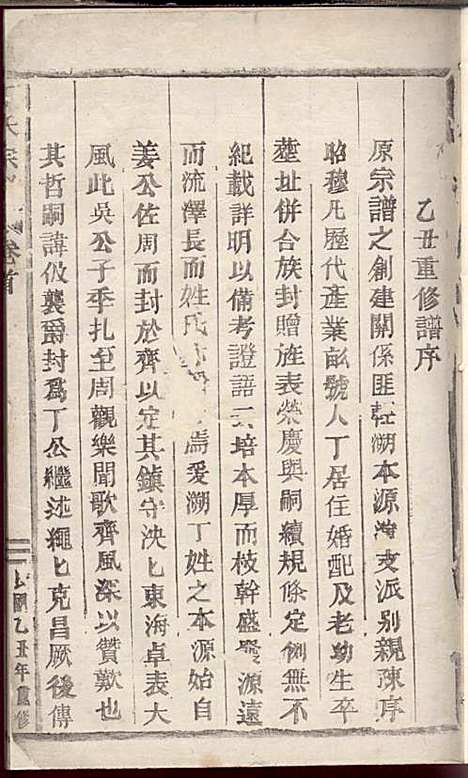 乙丑重修譜序
原宗譜之創建關係匪輕溯本源淸支派別親疎序
昭穆凡歷代產業畝號人丁居住婚配及老幼生卒
塟址併合族封贈旌表榮慶與嗣續規條定例無不
紀載詳明以備考證語云培本厚而枝幹盛發源遠
而流澤長而姓氏焉爰溯丁姓之本源始自
姜公佐周而封於齊以定其鎮守泱匕東海卓表大
風此吳公子季扎至周觀樂聞歌齊風深以贊歎也
其哲嗣諱伋襲爵封爲丁公繼述繩匕克昌厥後傳
氏宗 卷首
民國乙丑年重修